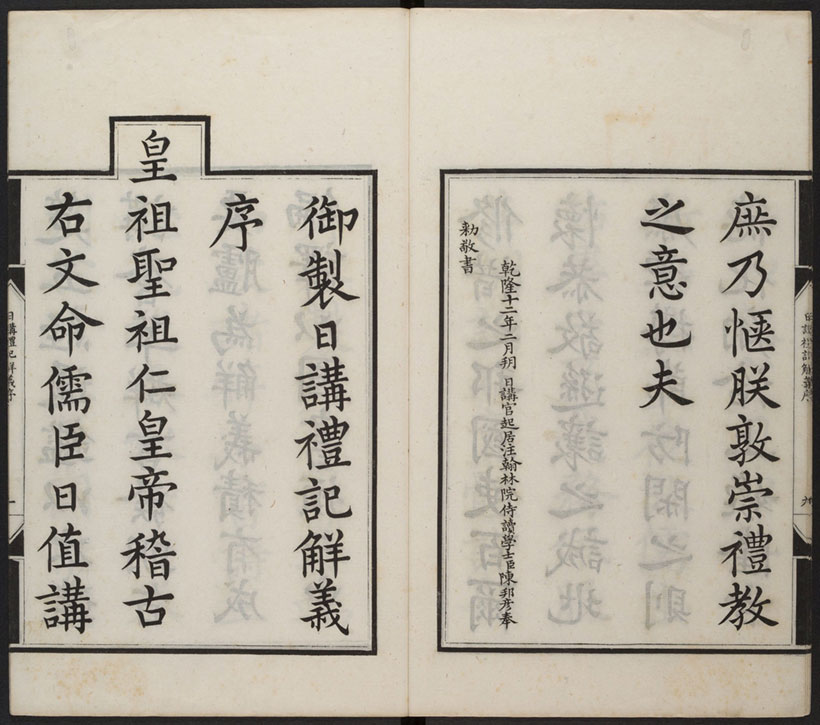 庶乃愜朕敦崇禮教
之意也夫
乾隆十二年二月朔日講官起居注翰林院侍讀學士臣陳邦彥奉
勅敬書
御製日講禮記解義
序
皇祖聖祖仁皇帝稽古
右文命儒臣日值講
日講禮記解義序
一